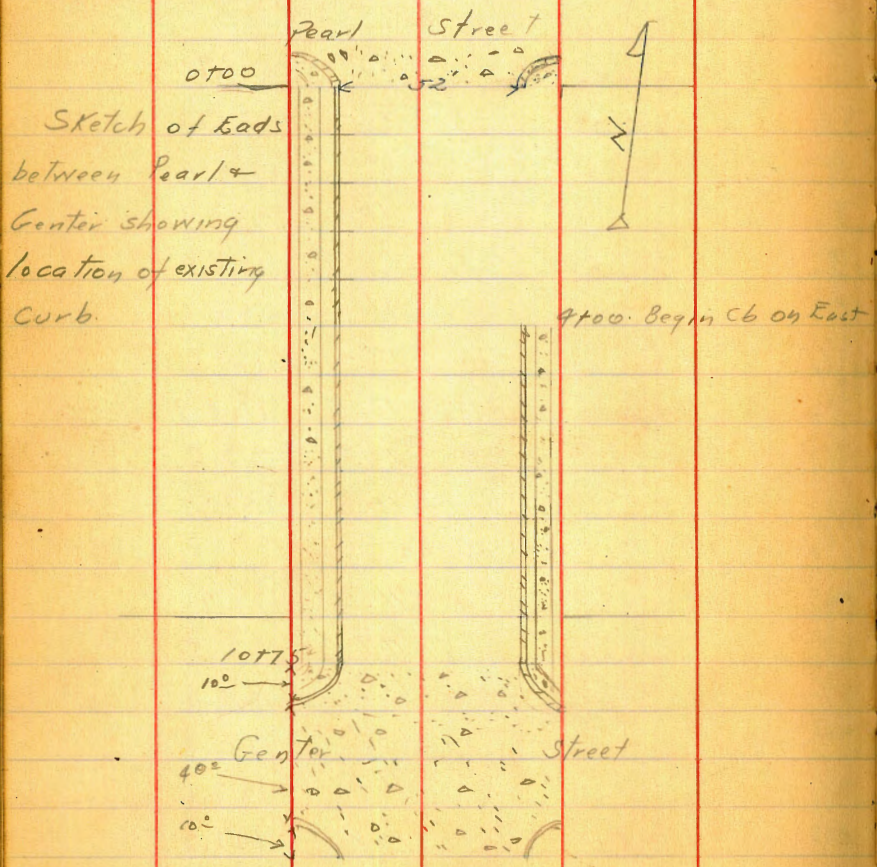 Pearl Street
0+00
52
Sketch of Eads
between Pearl &
Genter showing
location of existing
Curb.
N
4+00. Begin Cb on East
10+75
10º
Genter Street
40º
10º